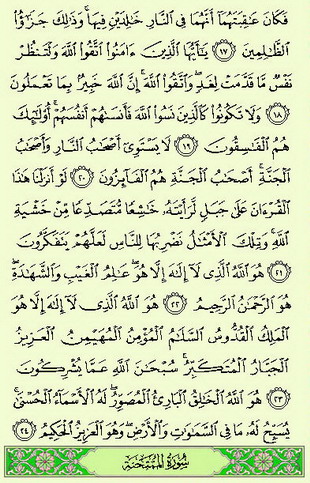 فَكَانَ عَٰقِبَتَهُمَآ أَنَّهُمَا فِى ٱلنَّارِ خَٰلِدَيْنِ فِيهَا ۚ وَذَٰلِكَ جَزَٰٓؤُا۟
ٱلظَّٰلِمِينَ ١٧ يَٰٓأَيُّهَا ٱلَّذِينَ ءَامَنُوا۟ ٱتَّقُوا۟ ٱللَّهَ وَلْتَنظُرْ
نَفْسٌ مَّا قَدَّمَتْ لِغَدٍ ۖ وَٱتَّقُوا۟ ٱللَّهَ ۚ إِنَّ ٱللَّهَ خَبِيرٌۢ بِمَا تَعْمَلُونَ
١٨ وَلَا تَكُونُوا۟ كَٱلَّذِينَ نَسُوا۟ ٱللَّهَ فَأَنسَىٰهُمْ أَنفُسَهُمْ ۚ أُو۟لَٰٓئِكَ
هُمُ ٱلْفَٰسِقُونَ ١٩ لَا يَسْتَوِىٓ أَصْحَٰبُ ٱلنَّارِ وَأَصْحَٰبُ
ٱلْجَنَّةِ ۚ أَصْحَٰبُ ٱلْجَنَّةِ هُمُ ٱلْفَآئِزُونَ ٢٠ لَوْ أَنزَلْنَا هَٰذَا
ٱلْقُرْءَانَ عَلَىٰ جَبَلٍ لَّرَأَيْتَهُۥ خَٰشِعًا مُّتَصَدِّعًا مِّنْ خَشْيَةِ
ٱللَّهِ ۚ وَتِلْكَ ٱلْأَمْثَٰلُ نَضْرِبُهَا لِلنَّاسِ لَعَلَّهُمْ يَتَفَكَّرُونَ
٢١ هُوَ ٱللَّهُ ٱلَّذِى لَآ إِلَٰهَ إِلَّا هُوَ ۖ عَٰلِمُ ٱلْغَيْبِ وَٱلشَّهَٰدَةِ ۖ
هُوَ ٱلرَّحْمَٰنُ ٱلرَّحِيمُ ٢٢ هُوَ ٱللَّهُ ٱلَّذِى لَآ إِلَٰهَ إِلَّا هُوَ
ٱلْمَلِكُ ٱلْقُدُّوسُ ٱلسَّلَٰمُ ٱلْمُؤْمِنُ ٱلْمُهَيْمِنُ ٱلْعَزِيزُ
ٱلْجَبَّارُ ٱلْمُتَكَبِّرُ ۚ سُبْحَٰنَ ٱللَّهِ عَمَّا يُشْرِكُونَ
٢٣ هُوَ ٱللَّهُ ٱلْخَٰلِقُ ٱلْبَارِئُ ٱلْمُصَوِّرُ ۖ لَهُ ٱلْأَسْمَآءُ ٱلْحُسْنَىٰ ۚ
يُسَبِّحُ لَهُۥ مَا فِى ٱلسَّمَٰوَٰتِ وَٱلْأَرْضِ ۖ وَهُوَ ٱلْعَزِيزُ ٱلْحَكِيمُ ٢٤
سُورَةُ الْمُمْتَحَنَةِ